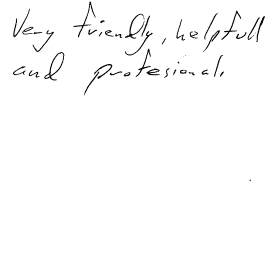 Very friendly, helpfull
and profesional.